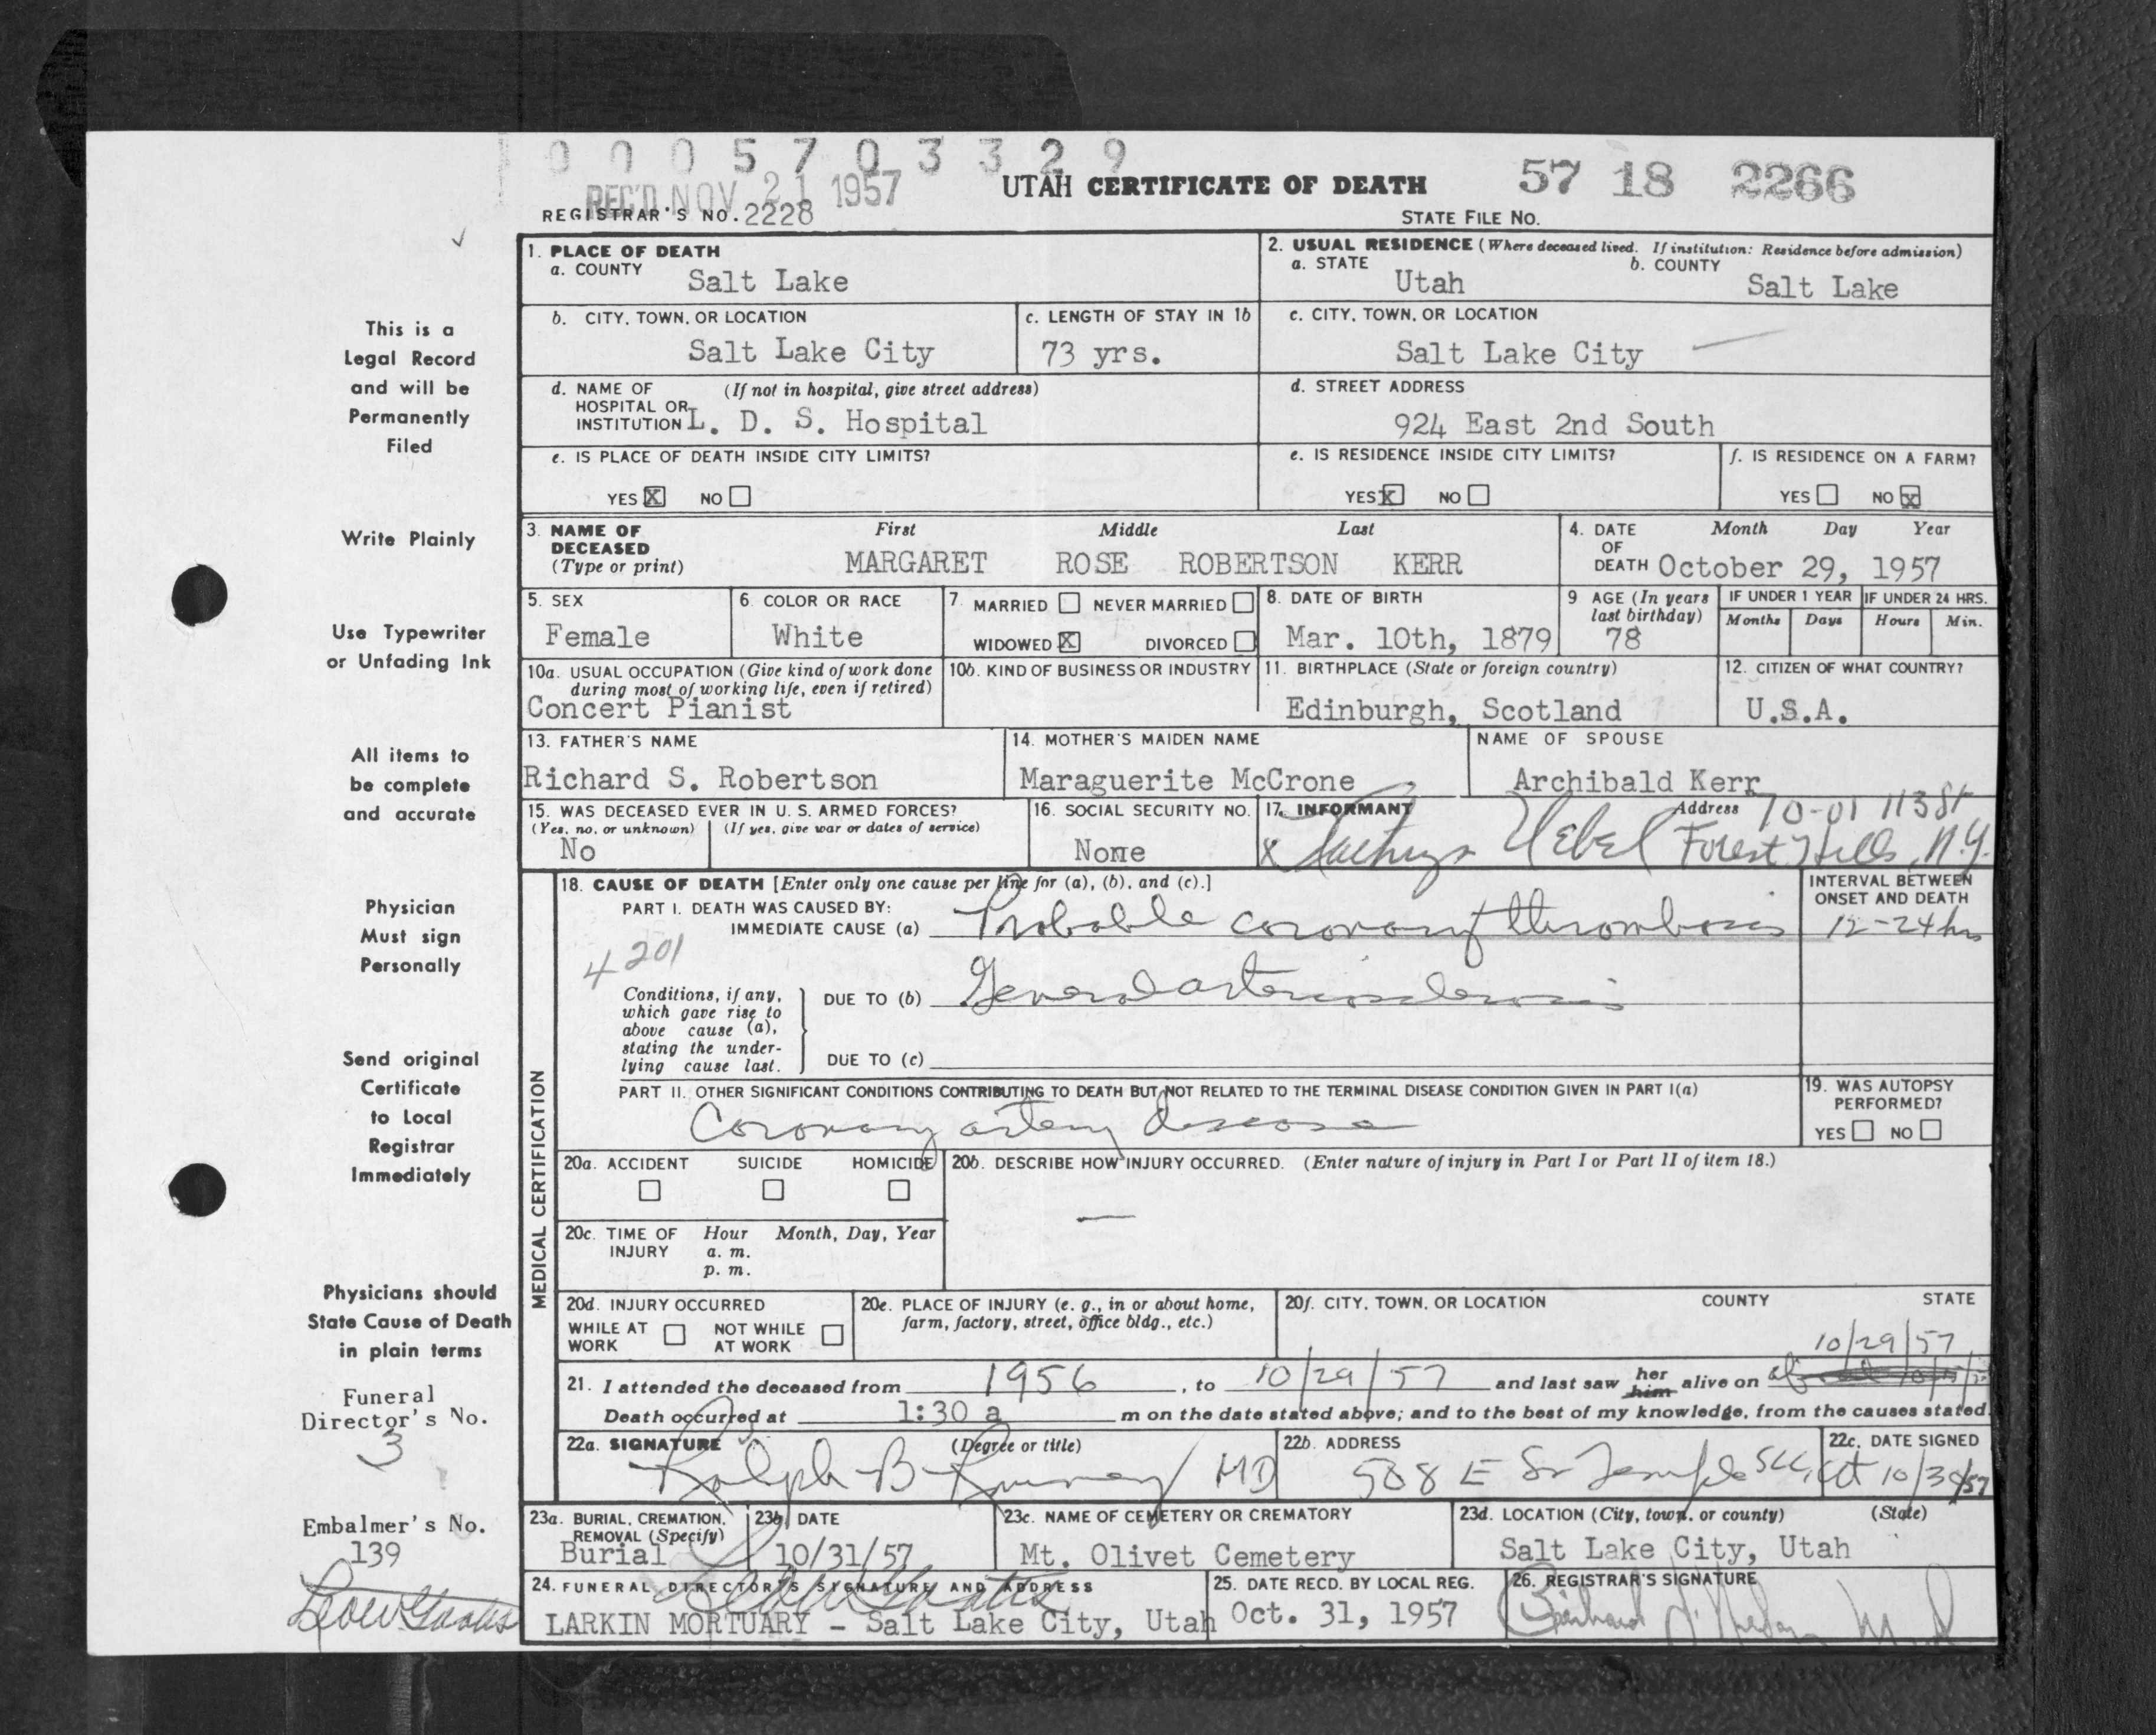 0 0 0 5 7 0 3 3 2 9
REC'D NOV 21 1957
UTAH CERTIFICATE OF DEATH
57 18 2266
REGISTRAR'S NO. 2228
STATE FILE NO.
1. PLACE OF DEATH
a. COUNTY Salt Lake
2. USUAL RESIDENCE (Where deceased lived. If institution: Residence before admission)
a. STATE Utah b. COUNTY Salt Lake
b. CITY, TOWN, OR LOCATION Salt Lake City
c. LENGTH OF STAY IN 1b 73 yrs.
c. CITY, TOWN, OR LOCATION Salt Lake City
d. NAME OF HOSPITAL OR INSTITUTION (If not in hospital, give street address) L. D. S. Hospital
d. STREET ADDRESS 924 East 2nd South
e. IS PLACE OF DEATH INSIDE CITY LIMITS?
YES X NO
e. IS RESIDENCE INSIDE CITY LIMITS?
YES X NO
f. IS RESIDENCE ON A FARM?
YES NO X
3. NAME OF DECEASED (Type or print) First Middle Last
MARGARET ROSE ROBERTSON KERR
4. DATE OF DEATH Month Day Year
October 29, 1957
5. SEX Female
6. COLOR OR RACE White
7. MARRIED NEVER MARRIED
WIDOWED X DIVORCED
8. DATE OF BIRTH Mar. 10th, 1879
9 AGE (In years last birthday) 78
IF UNDER 1 YEAR Months Days
IF UNDER 24 HRS. Hours Min.
10a. USUAL OCCUPATION (Give kind of work done during most of working life, even if retired)
Concert Pianist
10b. KIND OF BUSINESS OR INDUSTRY
11. BIRTHPLACE (State or foreign country)
Edinburgh, Scotland
12. CITIZEN OF WHAT COUNTRY?
U.S.A.
13. FATHER'S NAME
Richard S. Robertson
14. MOTHER'S MAIDEN NAME
Maraguerite McCrone
NAME OF SPOUSE
Archibald Kerr
15. WAS DECEASED EVER IN U. S. ARMED FORCES?
(Yes, no, or unknown) (If yes, give war or dates of service)
No
16. SOCIAL SECURITY NO.
None
17. INFORMANT Address
x Uebel 70-01 113 St
Forest Hills, N.Y.
MEDICAL CERTIFICATION
18. CAUSE OF DEATH [Enter only one cause per line for (a), (b), and (c).]
PART I. DEATH WAS CAUSED BY:
IMMEDIATE CAUSE (a) Probable coronary thrombosis
INTERVAL BETWEEN ONSET AND DEATH
12-24 hrs
4201
Conditions, if any, which gave rise to above cause (a), stating the underlying cause last.
DUE TO (b) General arteriosclerosis
DUE TO (c)
PART II. OTHER SIGNIFICANT CONDITIONS CONTRIBUTING TO DEATH BUT NOT RELATED TO THE TERMINAL DISEASE CONDITION GIVEN IN PART I(a)
Coronary artery disease
19. WAS AUTOPSY PERFORMED?
YES NO
20a. ACCIDENT SUICIDE HOMICIDE
20b. DESCRIBE HOW INJURY OCCURRED. (Enter nature of injury in Part I or Part II of item 18.)
20c. TIME OF INJURY Hour Month, Day, Year
a. m.
p. m.
20d. INJURY OCCURRED
WHILE AT WORK NOT WHILE AT WORK
20e. PLACE OF INJURY (e. g., in or about home, farm, factory, street, office bldg., etc.)
20f. CITY, TOWN, OR LOCATION COUNTY STATE
10/29/57
21. I attended the deceased from 1956, to 10/29/57 and last saw her him alive on
Death occurred at 1:30 a m on the date stated above; and to the best of my knowledge, from the causes stated.
22a. SIGNATURE (Degree or title)
Ralph B MD
22b. ADDRESS
508 E So Temple SLC, Ut
22c. DATE SIGNED
10/30/57
23a. BURIAL, CREMATION, REMOVAL (Specify)
Burial
23b. DATE
10/31/57
23c. NAME OF CEMETERY OR CREMATORY
Mt. Olivet Cemetery
23d. LOCATION (City, town, or county) (State)
Salt Lake City, Utah
24. FUNERAL DIRECTOR'S SIGNATURE AND ADDRESS
LARKIN MORTUARY - Salt Lake City, Utah
25. DATE RECD. BY LOCAL REG.
Oct. 31, 1957
26. REGISTRAR'S SIGNATURE
This is a
Legal Record
and will be
Permanently
Filed
Write Plainly
Use Typewriter
or Unfading Ink
All items to
be complete
and accurate
Physician
Must sign
Personally
Send original
Certificate
to Local
Registrar
Immediately
Physicians should
State Cause of Death
in plain terms
Funeral
Director's No.
3
Embalmer's No.
139